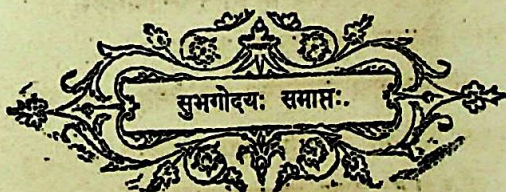 सुभगोदयः समाप्तः.